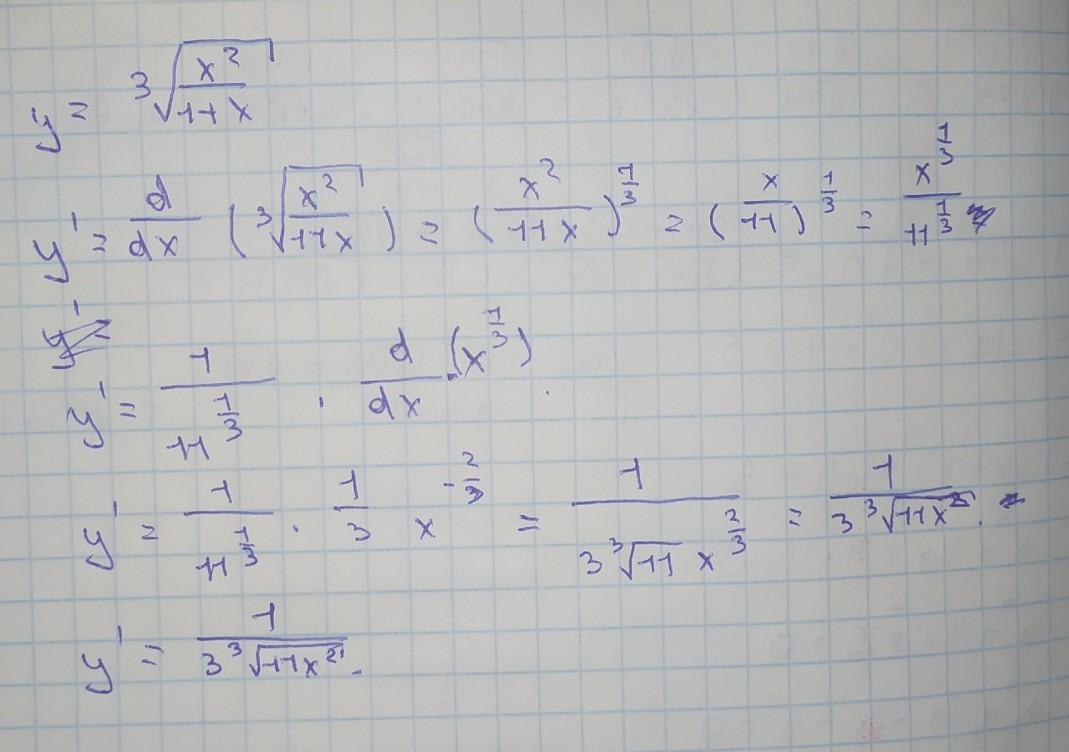 y = ³√(x²/11x)
y' = d/dx (³√(x²/11x)) = (x²/11x)^(1/3) = (x/11)^(1/3) = x^(1/3)/11^(1/3)
y' =
y' = 1/11^(1/3) · d/dx (x^(1/3))
y' = 1/11^(1/3) · 1/3 x^(-2/3) = 1/(3 ³√11 x^(2/3)) = 1/(3 ³√(11x²)).
y' = 1/(3 ³√(11x²)).